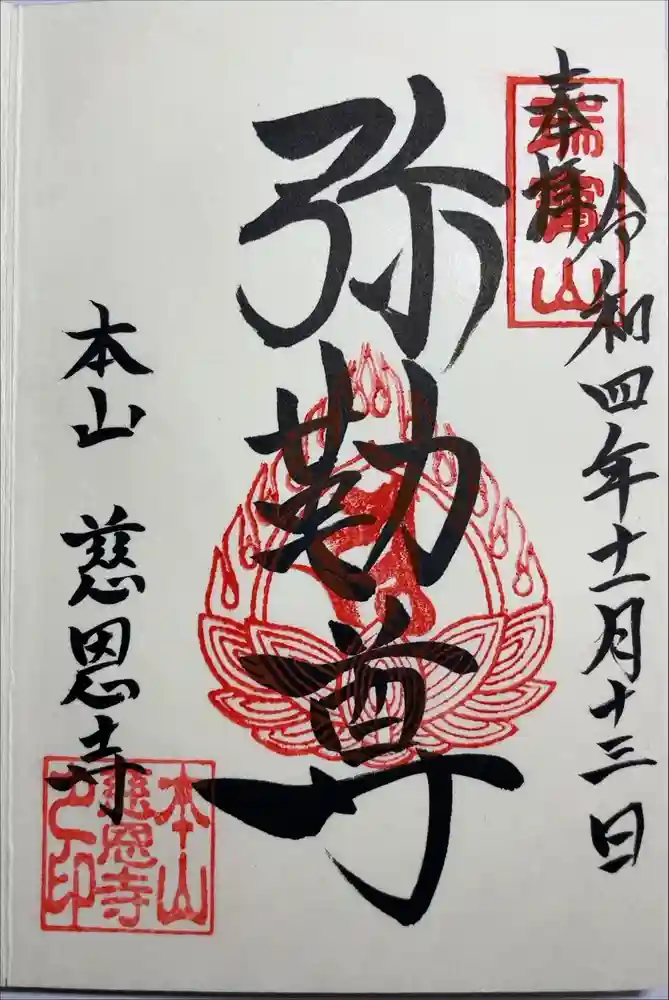 奉拝
令和四年十一月十三日
瑞寳山
弥勒尊
本山 慈恩寺
本山
慈恩寺
之印